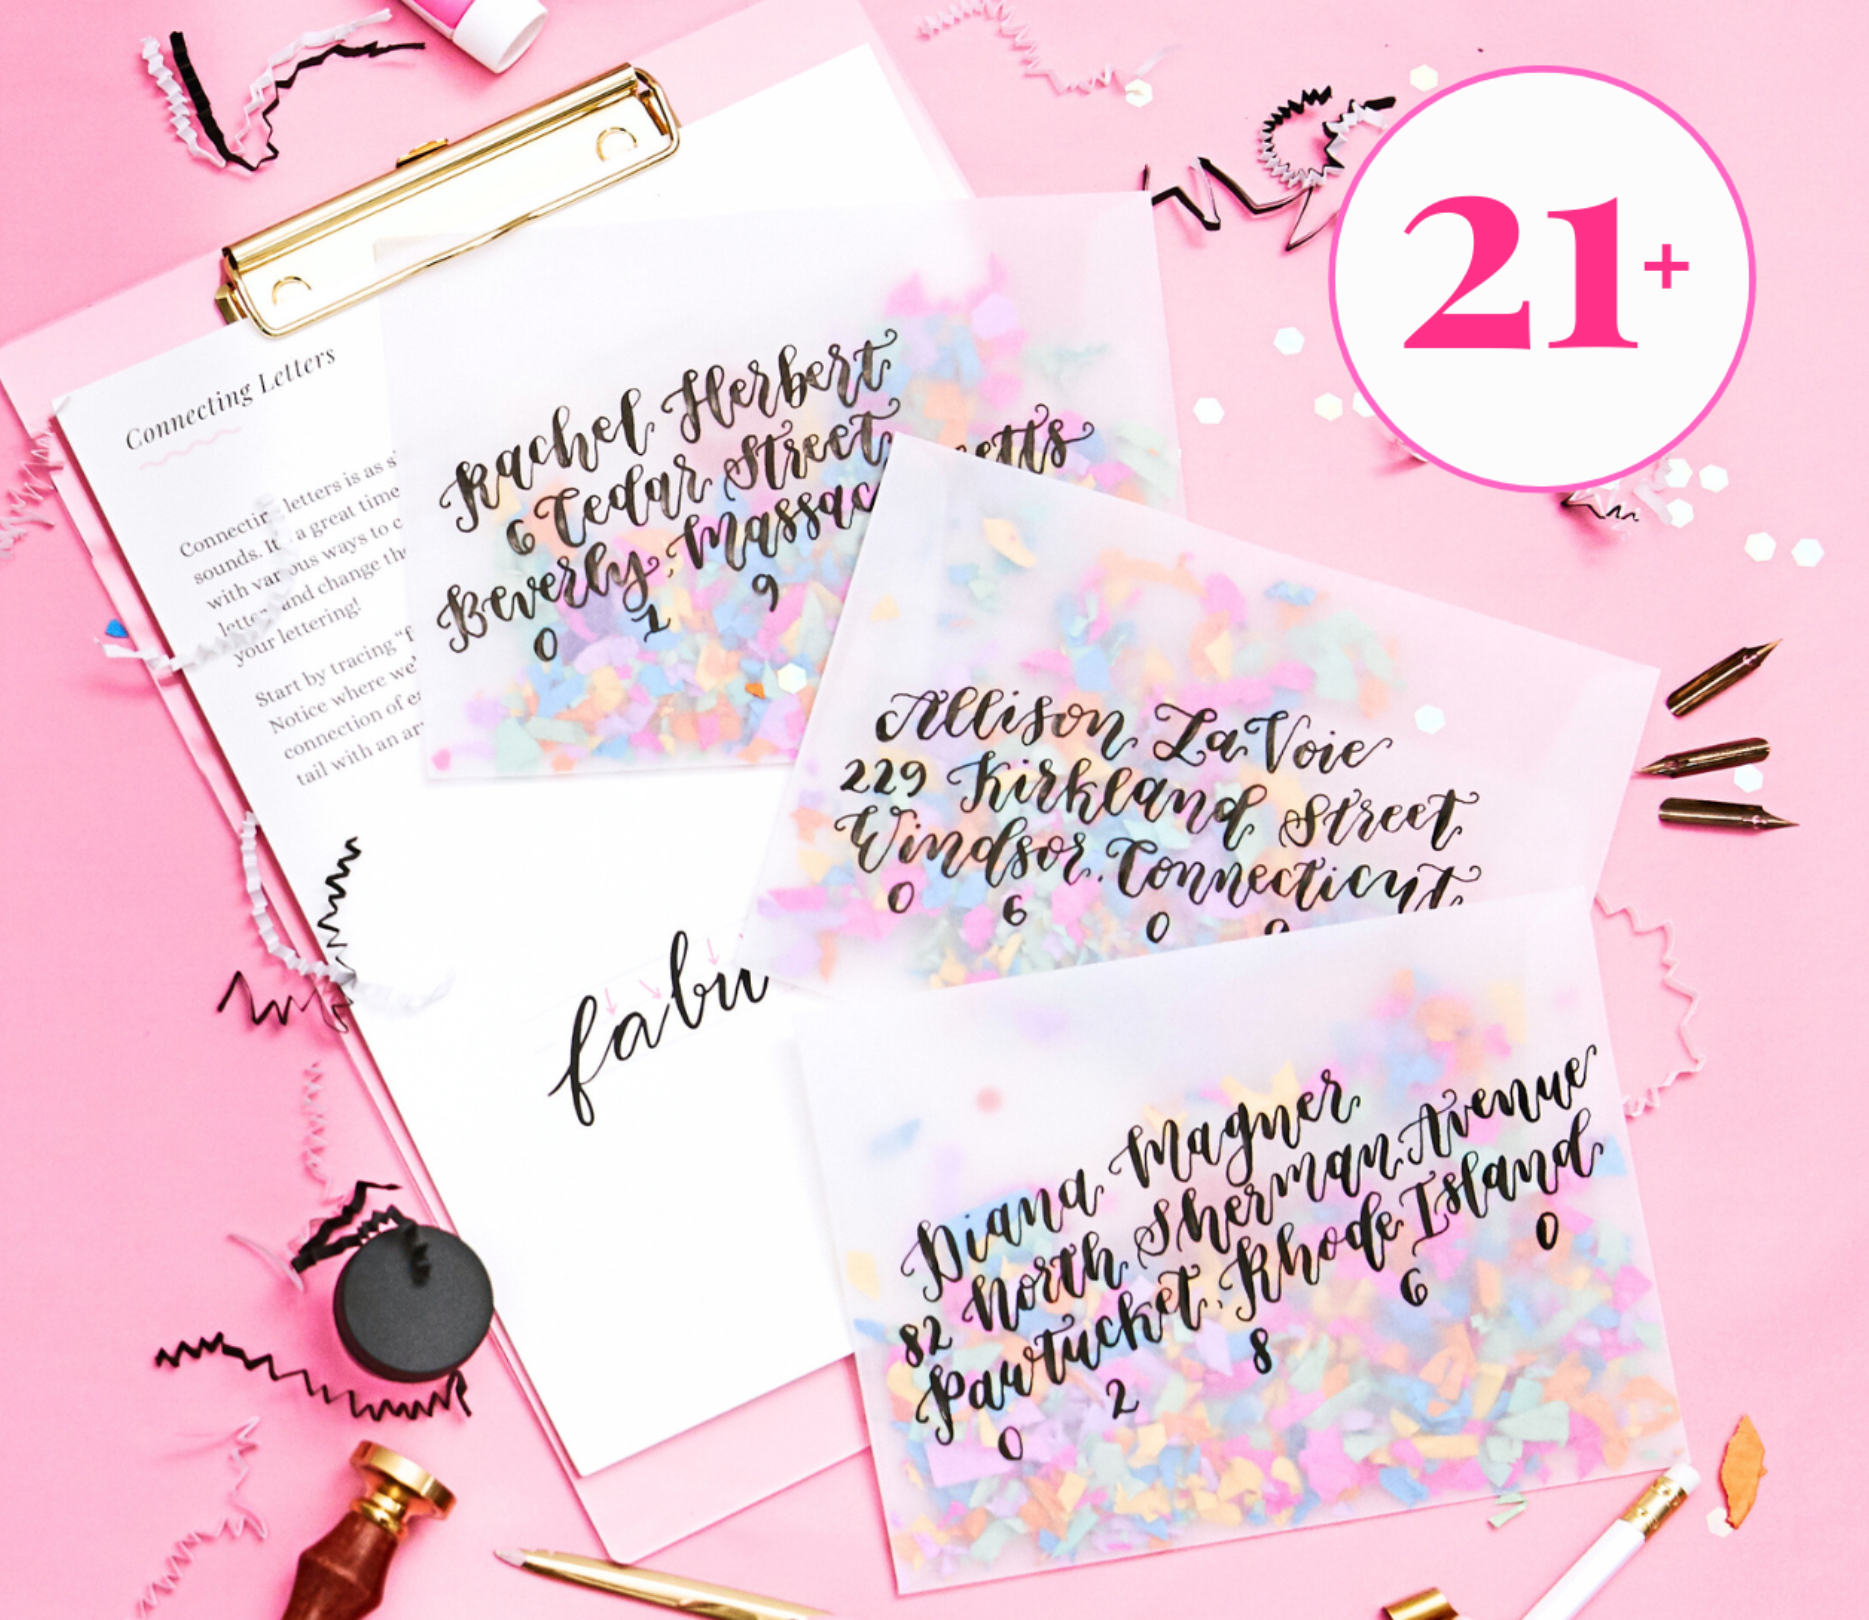 21+
Connecting Letters
letters is as
sounds. It a great time
with various ways to
and change
your lettering!
Start by tracing
Notice where
connection of
tail with an
fabu
Rachel Herbert
6 Cedar Street
Beverly, Massac etts
0 1 9
Allison LaVoie
229 Kirkland Street
Windsor, Connecticut
0 6 0
Diana Magner
82 North Sherman Avenue
Pawtucket, Rhode Island
0 2 8 6 0